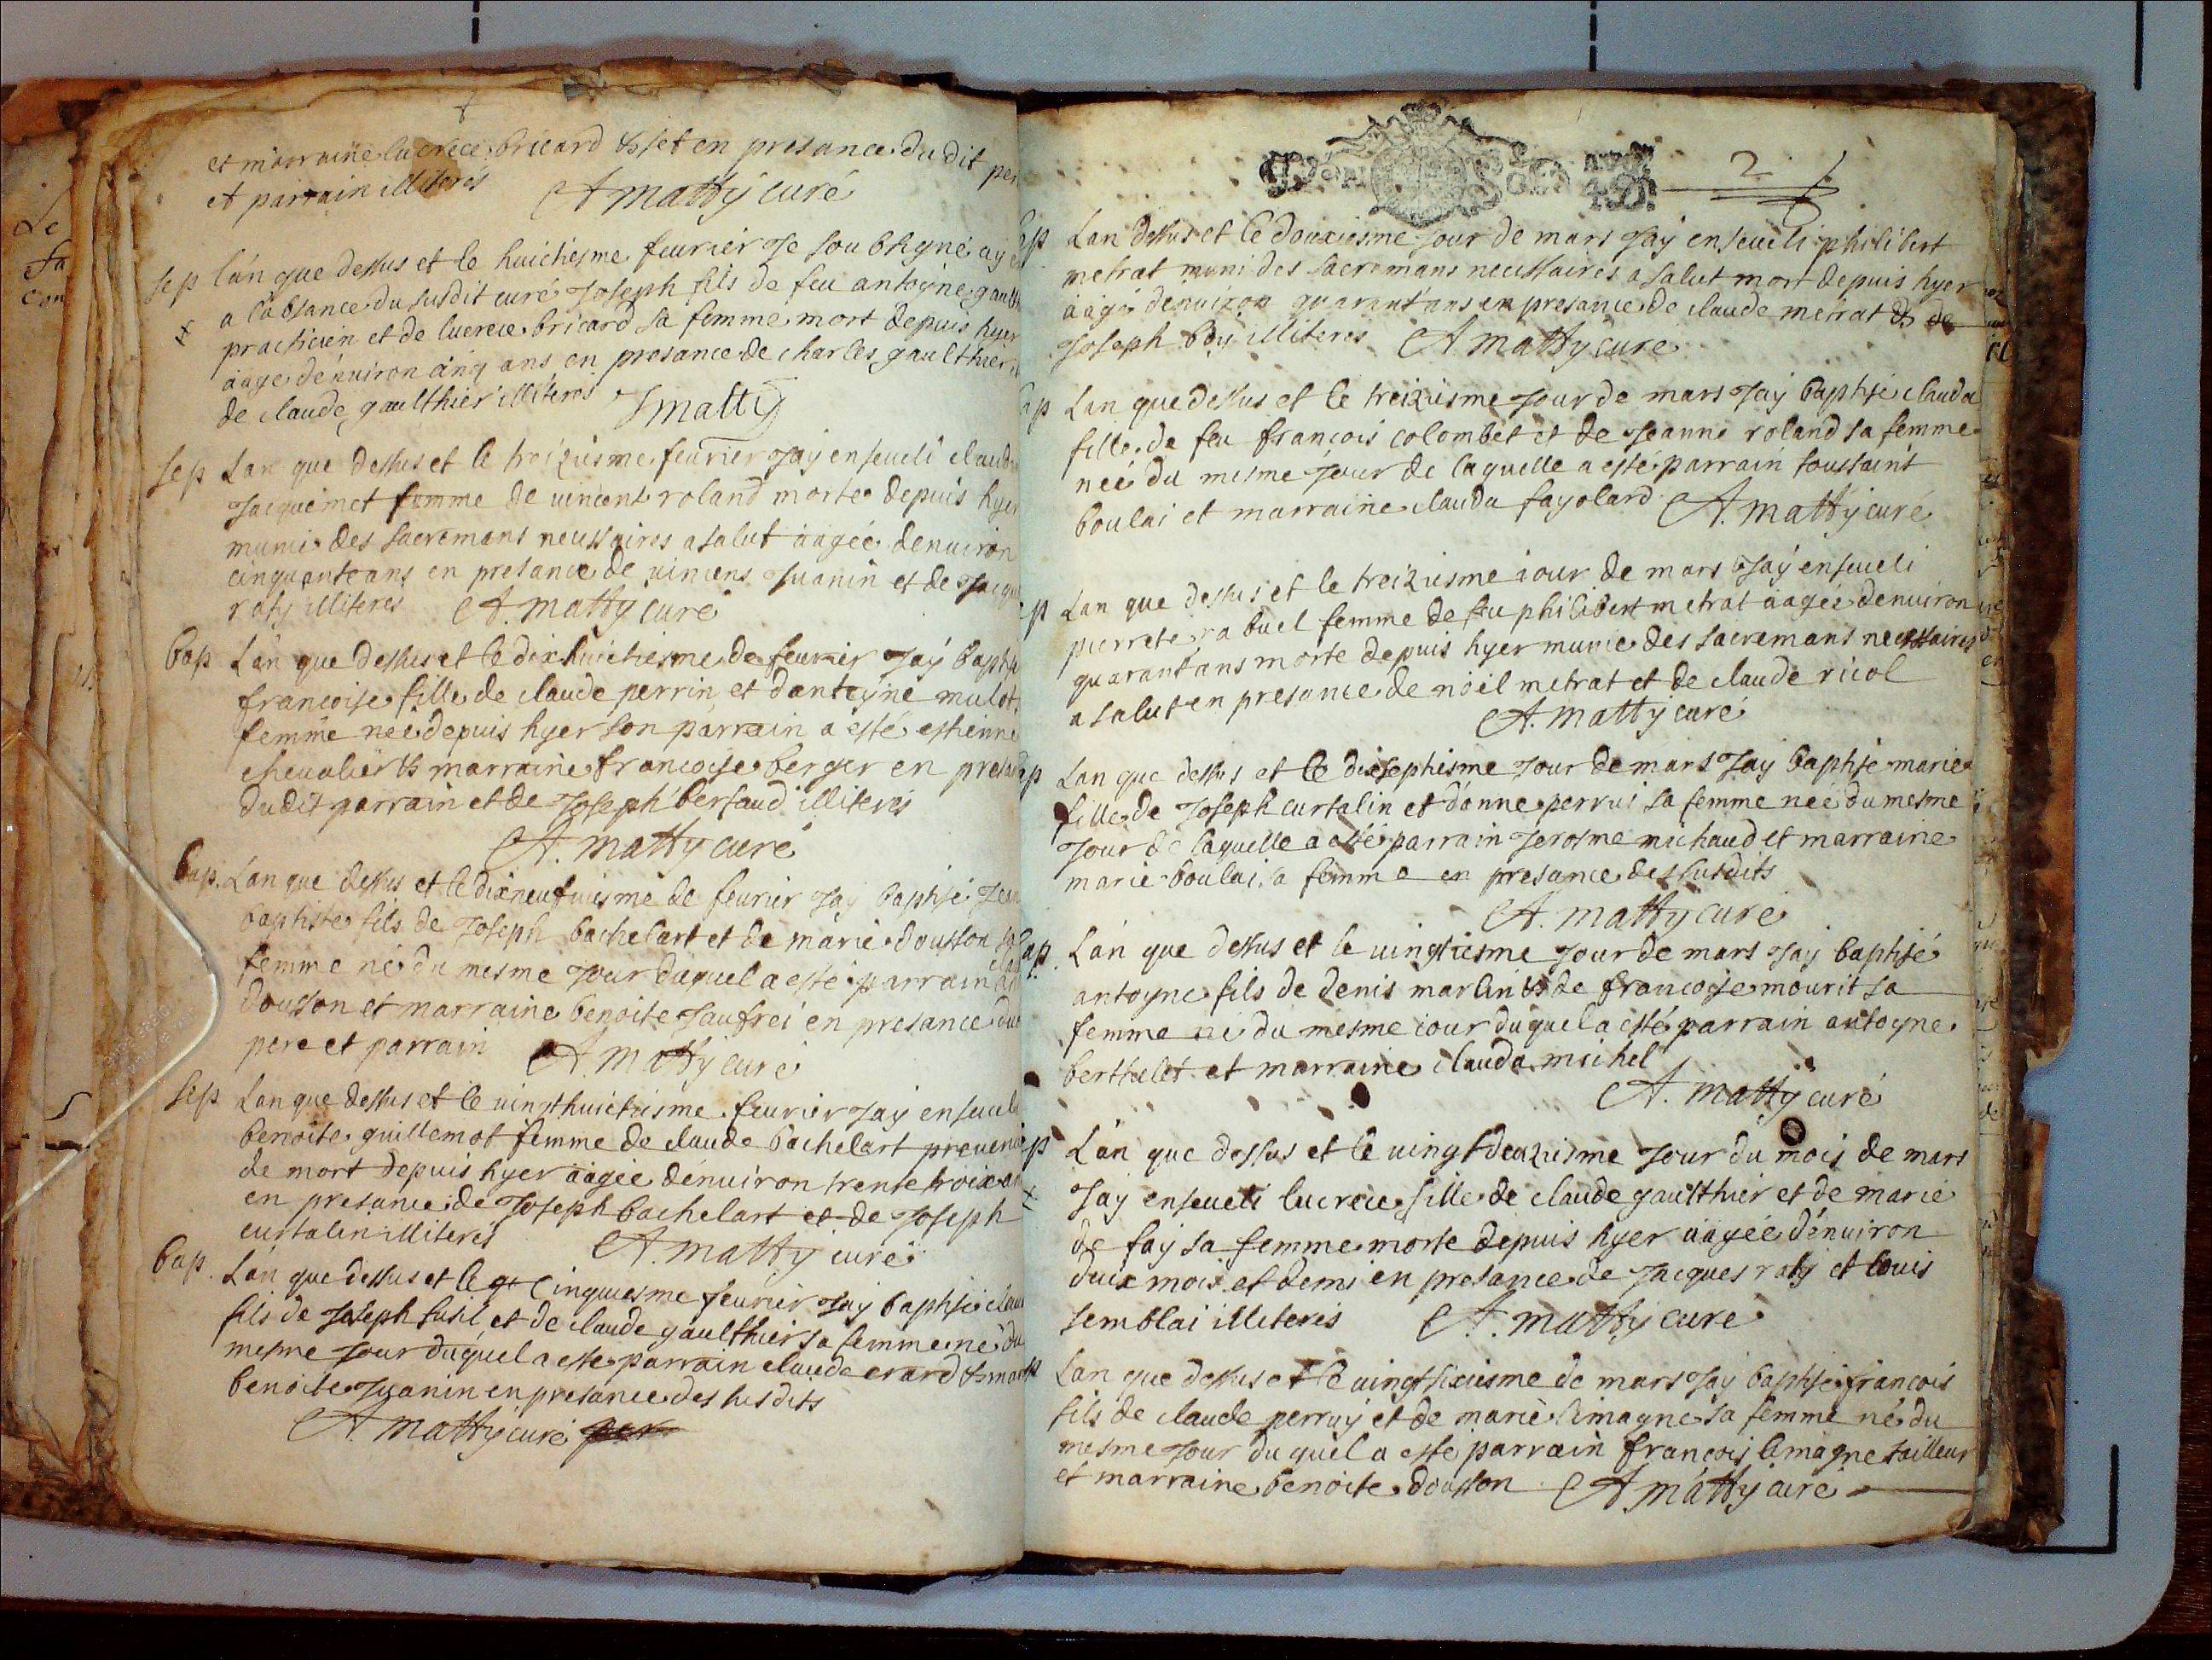 et marraine lucrece bricard & et en presance du dit per
et parrain illiterés A matty curé
sep lán que dessus et le huictiesme feurier Je soubsigné ay
a labsance du susdit curé Joseph fils de feu antoyne gaulth
practicien et de lucrece bricard sa femme mort depuis hyer
aage dénuiron cinq ans en presance de charles gaulthier
de claude gaulthier illiteres Jmatty
sep Lan que dessus et le treiziesme feurier Jay enseueli claud
Jacquemet femme de uincent roland morte depuis hyer
munie des sacremans necessaires a salut aagée denuiron
cinquante ans en presance de uincens Juanin et de Jacqu
raty illiteres A. matty curé
bap Lán que dessus et le dixhuictiesme de feurier Jaý baptisé
francoise fille de claude perrin et dantoyne mulot
femme neé depuis hyer son parrain a esté estienne
cheualier & marraine francoise berger en presan
du dit parrain et de Joseph bersaud illiterés
A. matty curé
bap. Lán que dessus et le dixneufuiesme de feurier Jay baptisé Jean
baptiste fils de Joseph bachelart et de marie dousson sa
femme né du mesme Jour duquel a esté parrain
dousson et marraine benoite Jaufreí en presance du
pere et parrain A. matty curé
sep Lan que dessus et le uingthuictiesme feurier Jay enseueli
benoite guillemot femme de claude bachelart preuenu
de mort depuis hyer aagée dénuiron trente troix
en presance de Joseph bachelart et de Joseph
curtalin illiterés A. matty curé
bap. Lán que dessus et le cinquiesme feurier Jay baptisé claud
fils de Joseph fusil et de claude gaulthier sa femme né du
mesme Jour duquel a esté parrain claude erard & mar
benoite Juanin en presance des susdits
A. matty curé
2
Lan dessus et le douxiesme Jour de mars Jay enseueli philibert
metrat muni des sacremans necessaires a salut mort depuis hyer
aagé denuiron quarant'ans en presance de claude metrat & de
Joseph boy illiteres A matty curé
Lan que dessus et le treiziesme Jour de mars Jay baptisé clauda
fille de feu francois colombet et de Jeanne roland sa femme
neé du mesme Jour de laquelle a esté parrain toussaint
boulai et marraine clauda fayolard A. matty curé
Lan que dessus et le treiziesme iour de mars Jaý enseueli
pierrete rabuel femme de feu philibert metrat aagée denuiron
quarant'ans morte depuis hyer munie des sacremans necessaires
a salut en presance de nöel metrat et de claude ricol
A. matty curé
Lan que dessus et le dixseptiesme Jour de mars Jay baptisé marie
fille de Joseph curtalin et dánne perrui sa femme neé du mesme
Jour de laquelle a esté parrain Jerosme michaud et marraine
marie boulai sa femme en presance des susdits
A. matty curé
bap. Lán que dessus et le uingtiesme Jour de mars Jay baptisé
antoyne fils de denis martin & de francoise mourit sa
femme né du mesme iour duquel a esté parrain antoyne
berthelet et marraine clauda michel
A. matty curé
Lán que dessus et le uingtdeuxiesme Jour du mois de mars
Jay enseueli lucrece fille de claude gaulthier et de marie
de fay sa femme morte depuis hyer aagée dénuiron
duix mois et demi en presance de Jacques raty et louis
semblai illiterés A. matty curé
Lan que dessus et le uingtsixiesme de mars Jay baptisé francois
fils de claude perruy et de marie limagne sa femme né du
mesme Jour duquel a esté parrain francois limagne tailleur
et marraine benoite dousson A matty curé